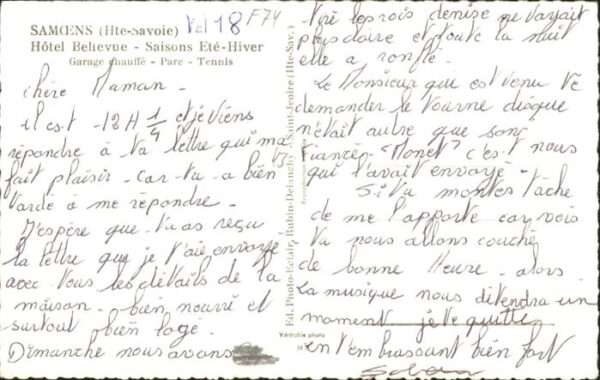 SAMŒNS (Hte-Savoie)
Hôtel Bellevue - Saisons Eté-Hiver
Garage chauffé - Parc - Tennis
18 F74
chère Maman -
il est 18H 1/4 et je viens
répondre à ta lettre qui m'a
fait plaisir - car tu a bien
tardé à me répondre.
J'espère que tu as reçu
la lettre que je t'aie envoyé
avec tous les détails de la
maison - bien nourri et
surtout bien logé.
Dimanche nous avons
Ed. Photo-Eclair, Saint-Jeoire (Hte-Sav.)
Véritable photo
tiré les rois denise ne voyait
plus claire et toute la nuit
elle a ronflé.
Le Monsieur qui est venu te
demander le tourne disque
n'était autre que son
fiancée "Monet" c'est nous
qui l'avait envoyé -
Si tu montes tâche
de me l'apporté car vois
tu nous allons couché
de bonne Heure - alors
la musique nous détendra un
moment je te quitte
en t'embrassant bien fort